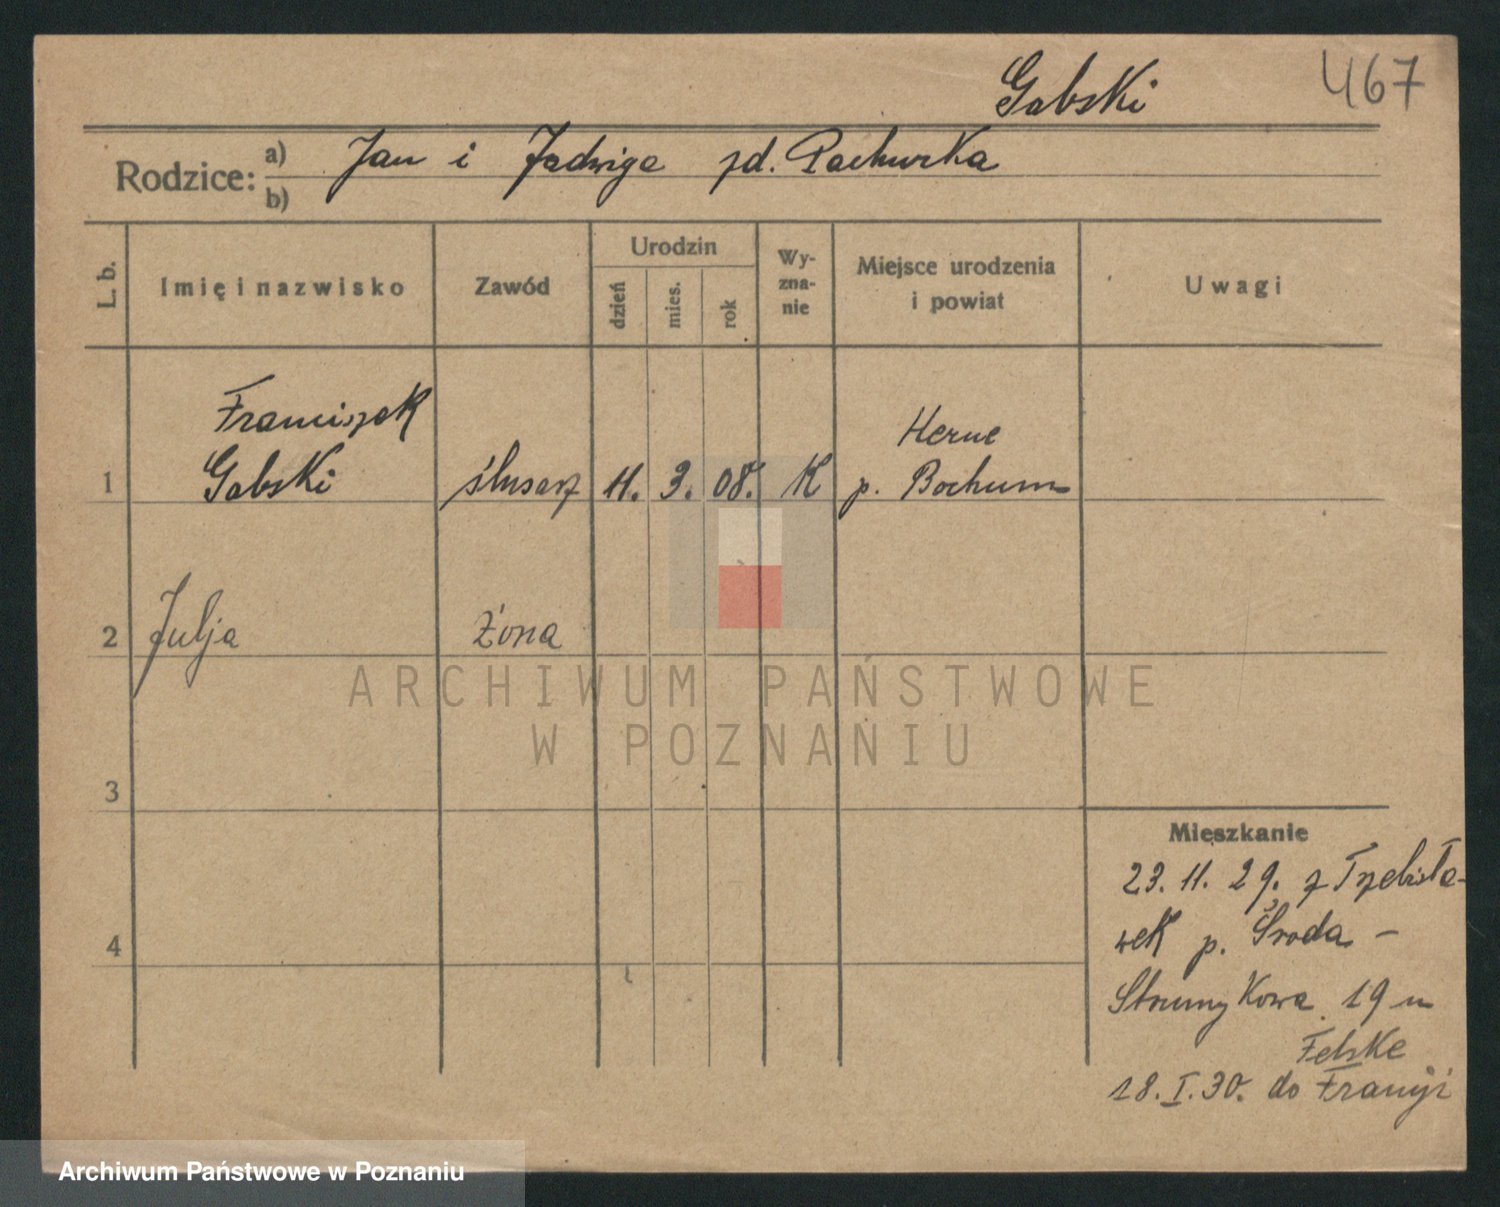 Gabski
467
Rodzice: a) Jan i Jadwiga zd. Pachurka
b)
L. b.
Imię i nazwisko
Zawód
Urodzin
dzień
mies.
rok
Wy-
zna-
nie
Miejsce urodzenia
i powiat
Uwagi
Franciszek
Gabski
1
ślusarz
11. 3. 08.
K
Herne
p. Bochum
2 Julja
Żona
ARCHIWUM PAŃSTWOWE
W POZNANIU
3
4
Mieszkanie
23. 11. 29. z Trzebisła-
wek p. Środa -
Strumykowa 19 u
Felske
18. I. 30. do Francji
Archiwum Państwowe w Poznaniu